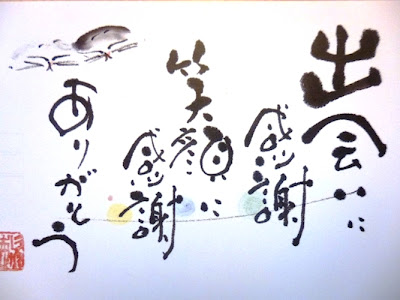 出会いに
感謝
笑顔に
感謝
ありがとう